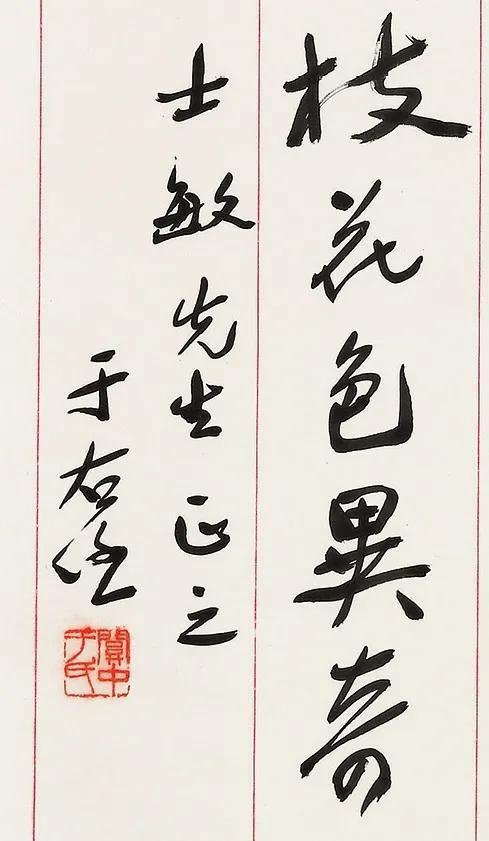 枝花色異奇
士敏先生正之
于右任
關中于氏